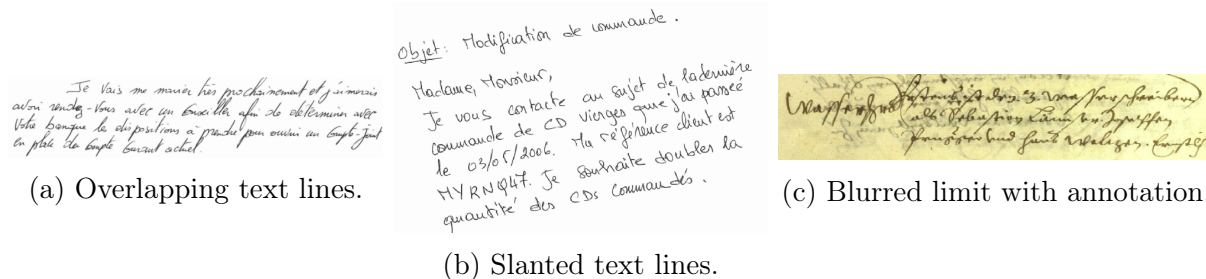 Je vais me marier très prochainement et j'aimerais
avoir rendez-vous avec un conseiller afin de déterminer avec
votre banque les dispositions à prendre pour ouvrir un compte-joint
en place du compte courant actuel.
(a) Overlapping text lines.
Objet: Modification de commande.
Madame, Monsieur,
Je vous contacte au sujet de la dernière
commande de CD vierges que j'ai passée
le 03/05/2006. Ma référence client est
MYRNQ47. Je souhaite doubler la
quantité des CDs commandés.
(b) Slanted text lines.
als Sebastian
und hans
(c) Blurred limit with annotation